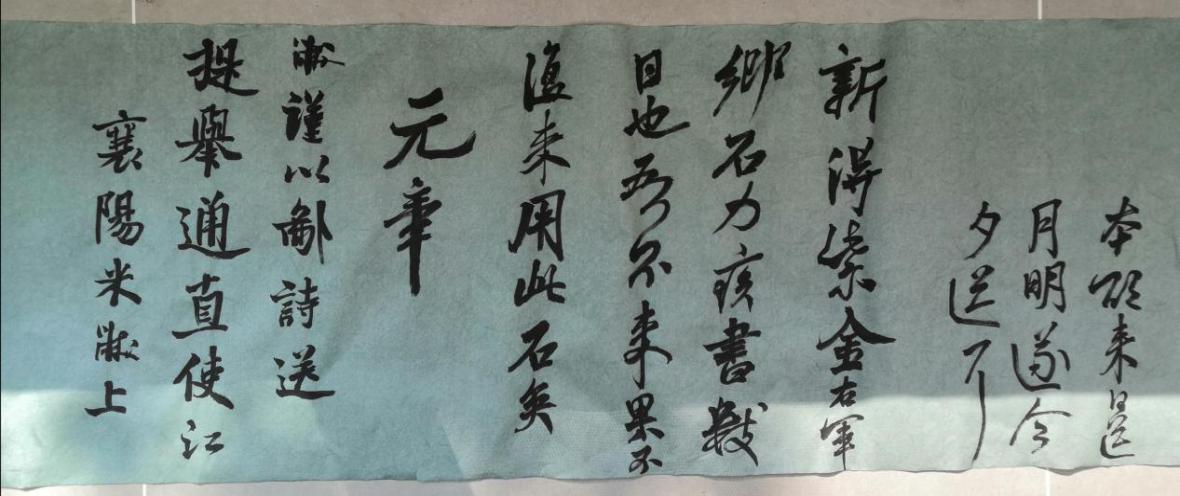 本欲来日送
月明遂今
夕送耳
新得紫金右軍
鄉石力疾書數
日也吾不来果不
復来用此石矣
元章
黻謹以鄙詩送
提舉通直使江
襄陽米黻上